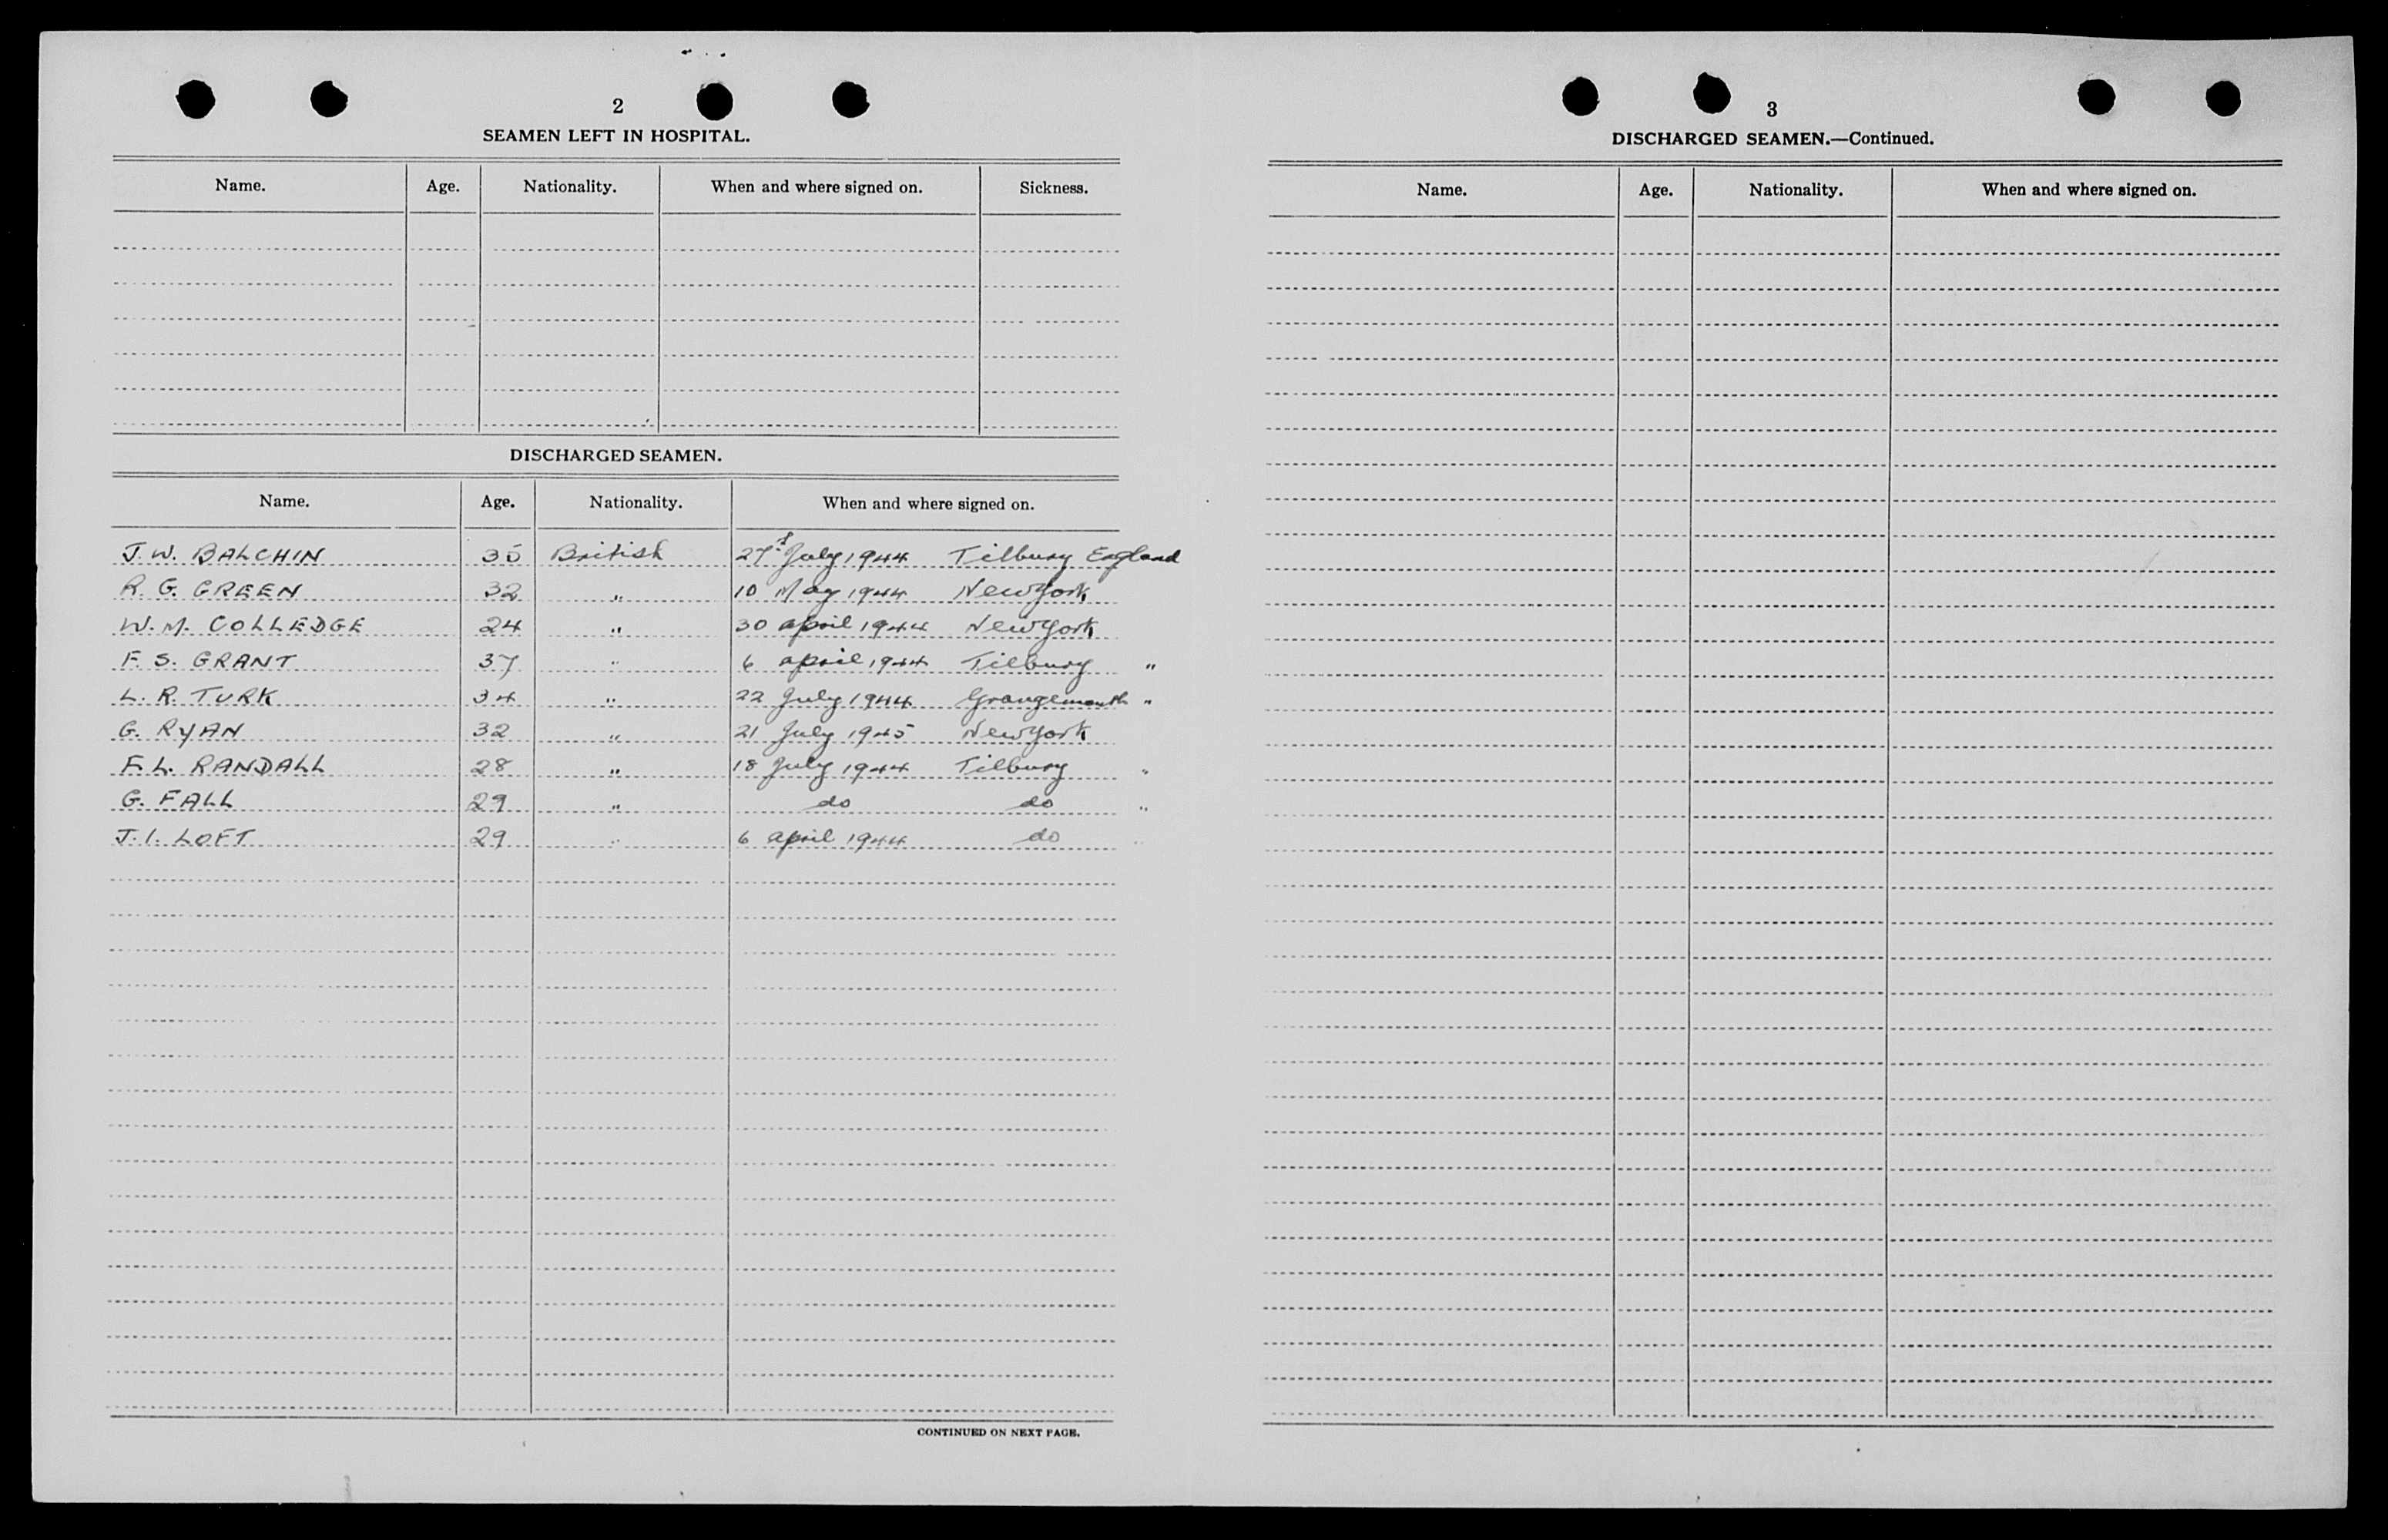 2
SEAMEN LEFT IN HOSPITAL.
Name. Age. Nationality. When and where signed on. Sickness.
DISCHARGED SEAMEN.
Name. Age. Nationality. When and where signed on.
J. W. BALCHIN 35 British 27 July 1944 Tilbury England
R. G. GREEN 32 " 10 May 1944 New York
W. M. COLLEDGE 24 " 30 april 1944 New York
F. S. GRANT 37 " 6 april 1944 Tilbury "
L. R. TURK 34 " 22 July 1944 Grangemouth "
G. RYAN 32 " 21 July 1945 New York
F. L. RANDALL 28 " 18 July 1944 Tilbury "
G. FALL 29 " do do "
J. I. LOFT 29 " 6 april 1944 do "
CONTINUED ON NEXT PAGE.
3
DISCHARGED SEAMEN.—Continued.
Name. Age. Nationality. When and where signed on.